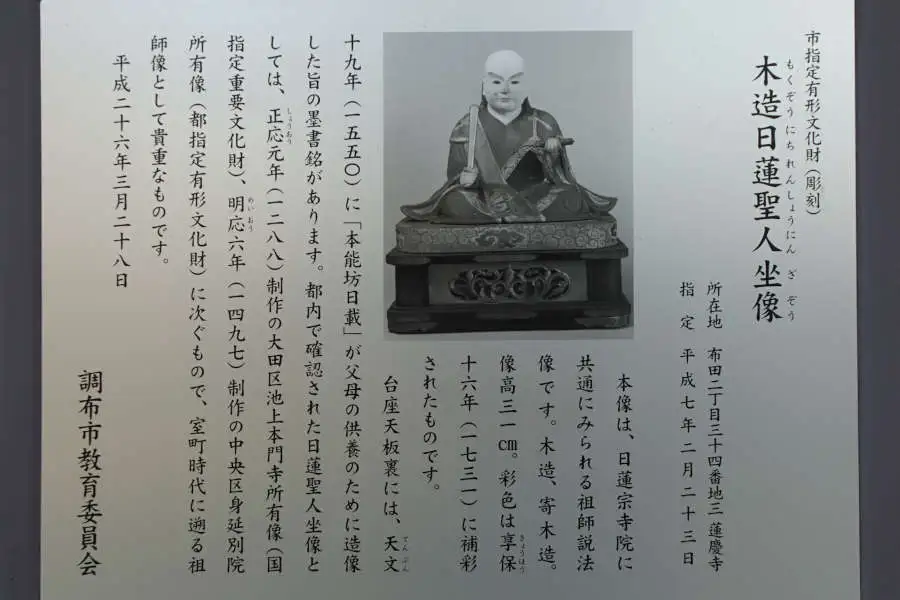 市指定有形文化財（彫刻）
木造日蓮聖人坐像
もくぞうにちれんしょうにんざぞう
所在地　布田二丁目三十四番地三 蓮慶寺
指　定　平成七年二月二十三日
本像は、日蓮宗寺院に
共通にみられる祖師説法
像です。木造、寄木造。
像高三一㎝。彩色は享保
きょうほう
十六年（一七三一）に補彩
されたものです。
台座天板裏には、天文
てんぶん
十九年（一五五〇）に「本能坊日載」が父母の供養のために造像
した旨の墨書銘があります。都内で確認された日蓮聖人坐像と
しては、正応元年（一二八八）制作の大田区池上本門寺所有像（国
しょうおう
指定重要文化財）、明応六年（一四九七）制作の中央区身延別院
めいおう
所有像（都指定有形文化財）に次ぐもので、室町時代に遡る祖
師像として貴重なものです。
平成二十六年三月二十八日
調布市教育委員会